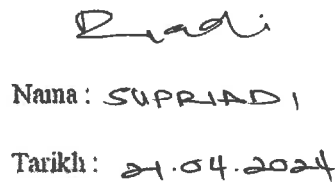 Riadi
Nama : SUPRIADI
Tarikh : 21.04.2024